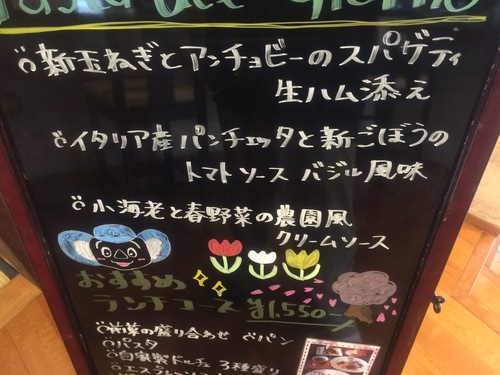 Pasta del Giorno
新玉ねぎとアンチョビーのスパゲティ
生ハム添え
イタリア産パンチェッタと新ごぼうの
トマトソース バジル風味
小海老と春野菜の農園風
クリームソース
おすすめ
ランチコース ¥1,550-
前菜の盛り合わせ パン
パスタ
自家製ドルチェ 3種盛り